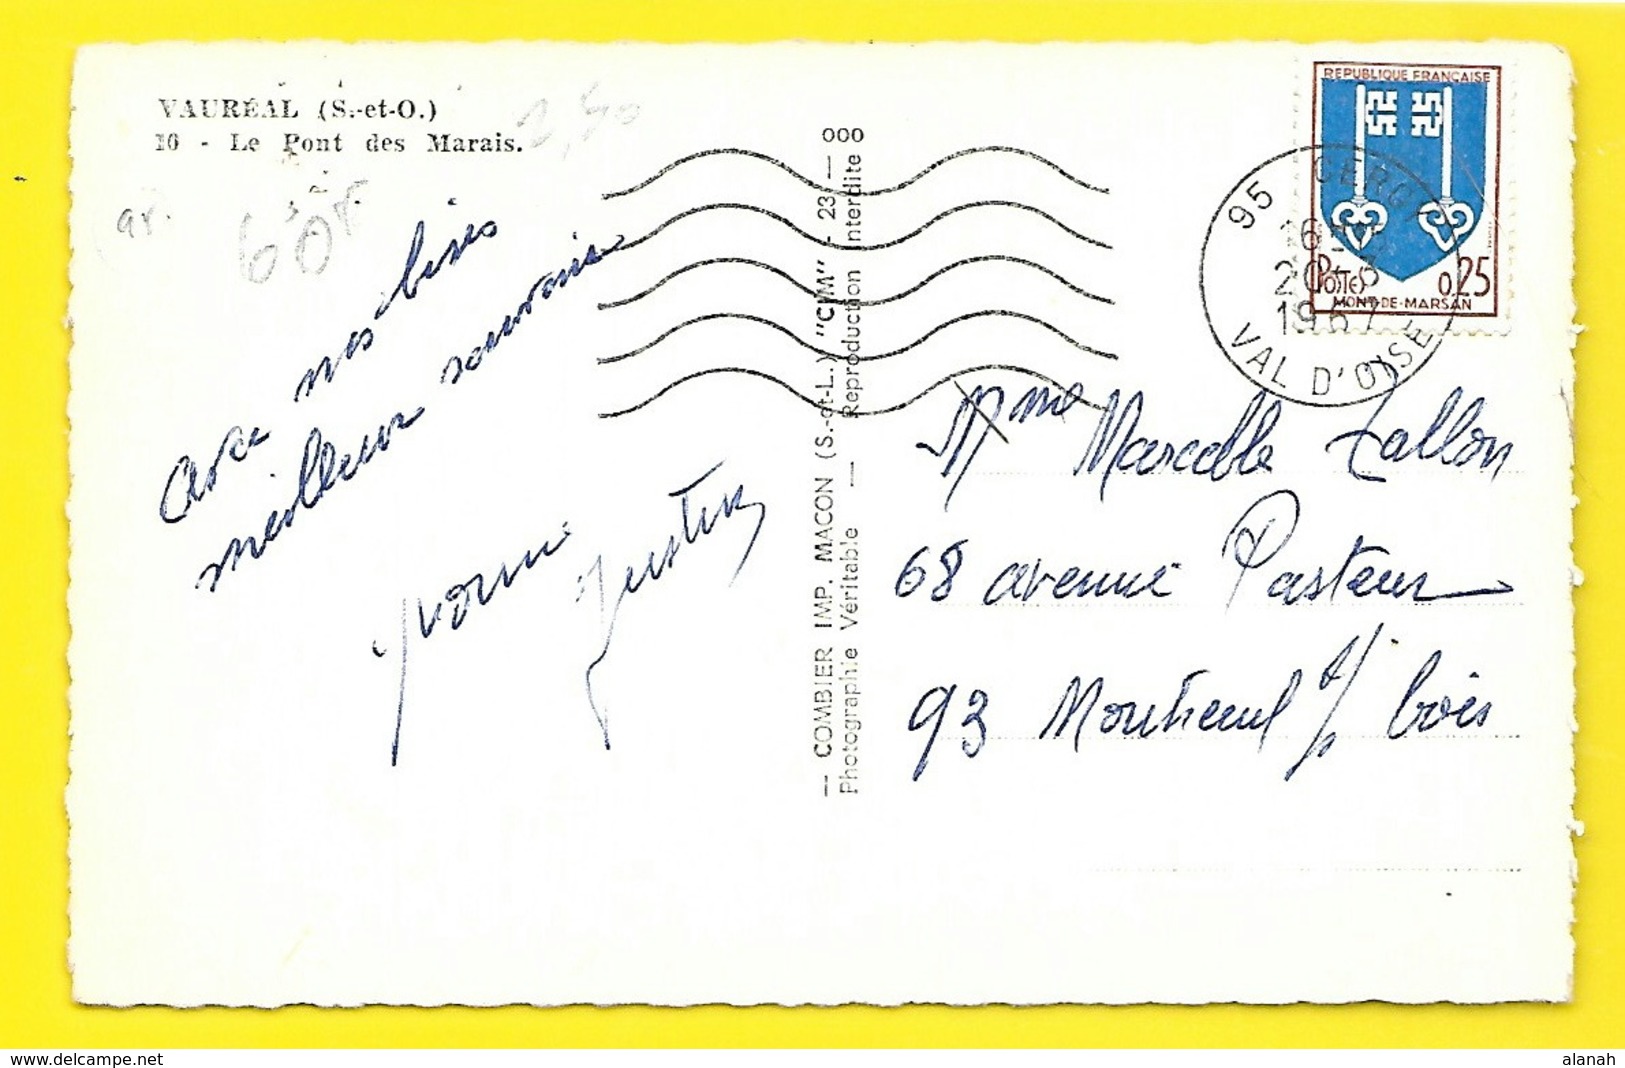 VAURÉAL (S.-et-O.)
10 - Le Pont des Marais.
2,50
ar.
60F.
avec mes bises
meilleur souvenir
Yvonne Justin
— COMBIER IMP. MACON (S.-et-L.) "CIM" - 23 — 000
Photographie Véritable — Reproduction Interdite
REPUBLIQUE FRANÇAISE
POSTES 0,25
MONT-DE-MARSAN
95 CERGY
20 - 3
1967
VAL D'OISE
Mme Marcelle
68 avenue Pasteur
93 Montreuil s/ bois
www.delcampe.net
alanah